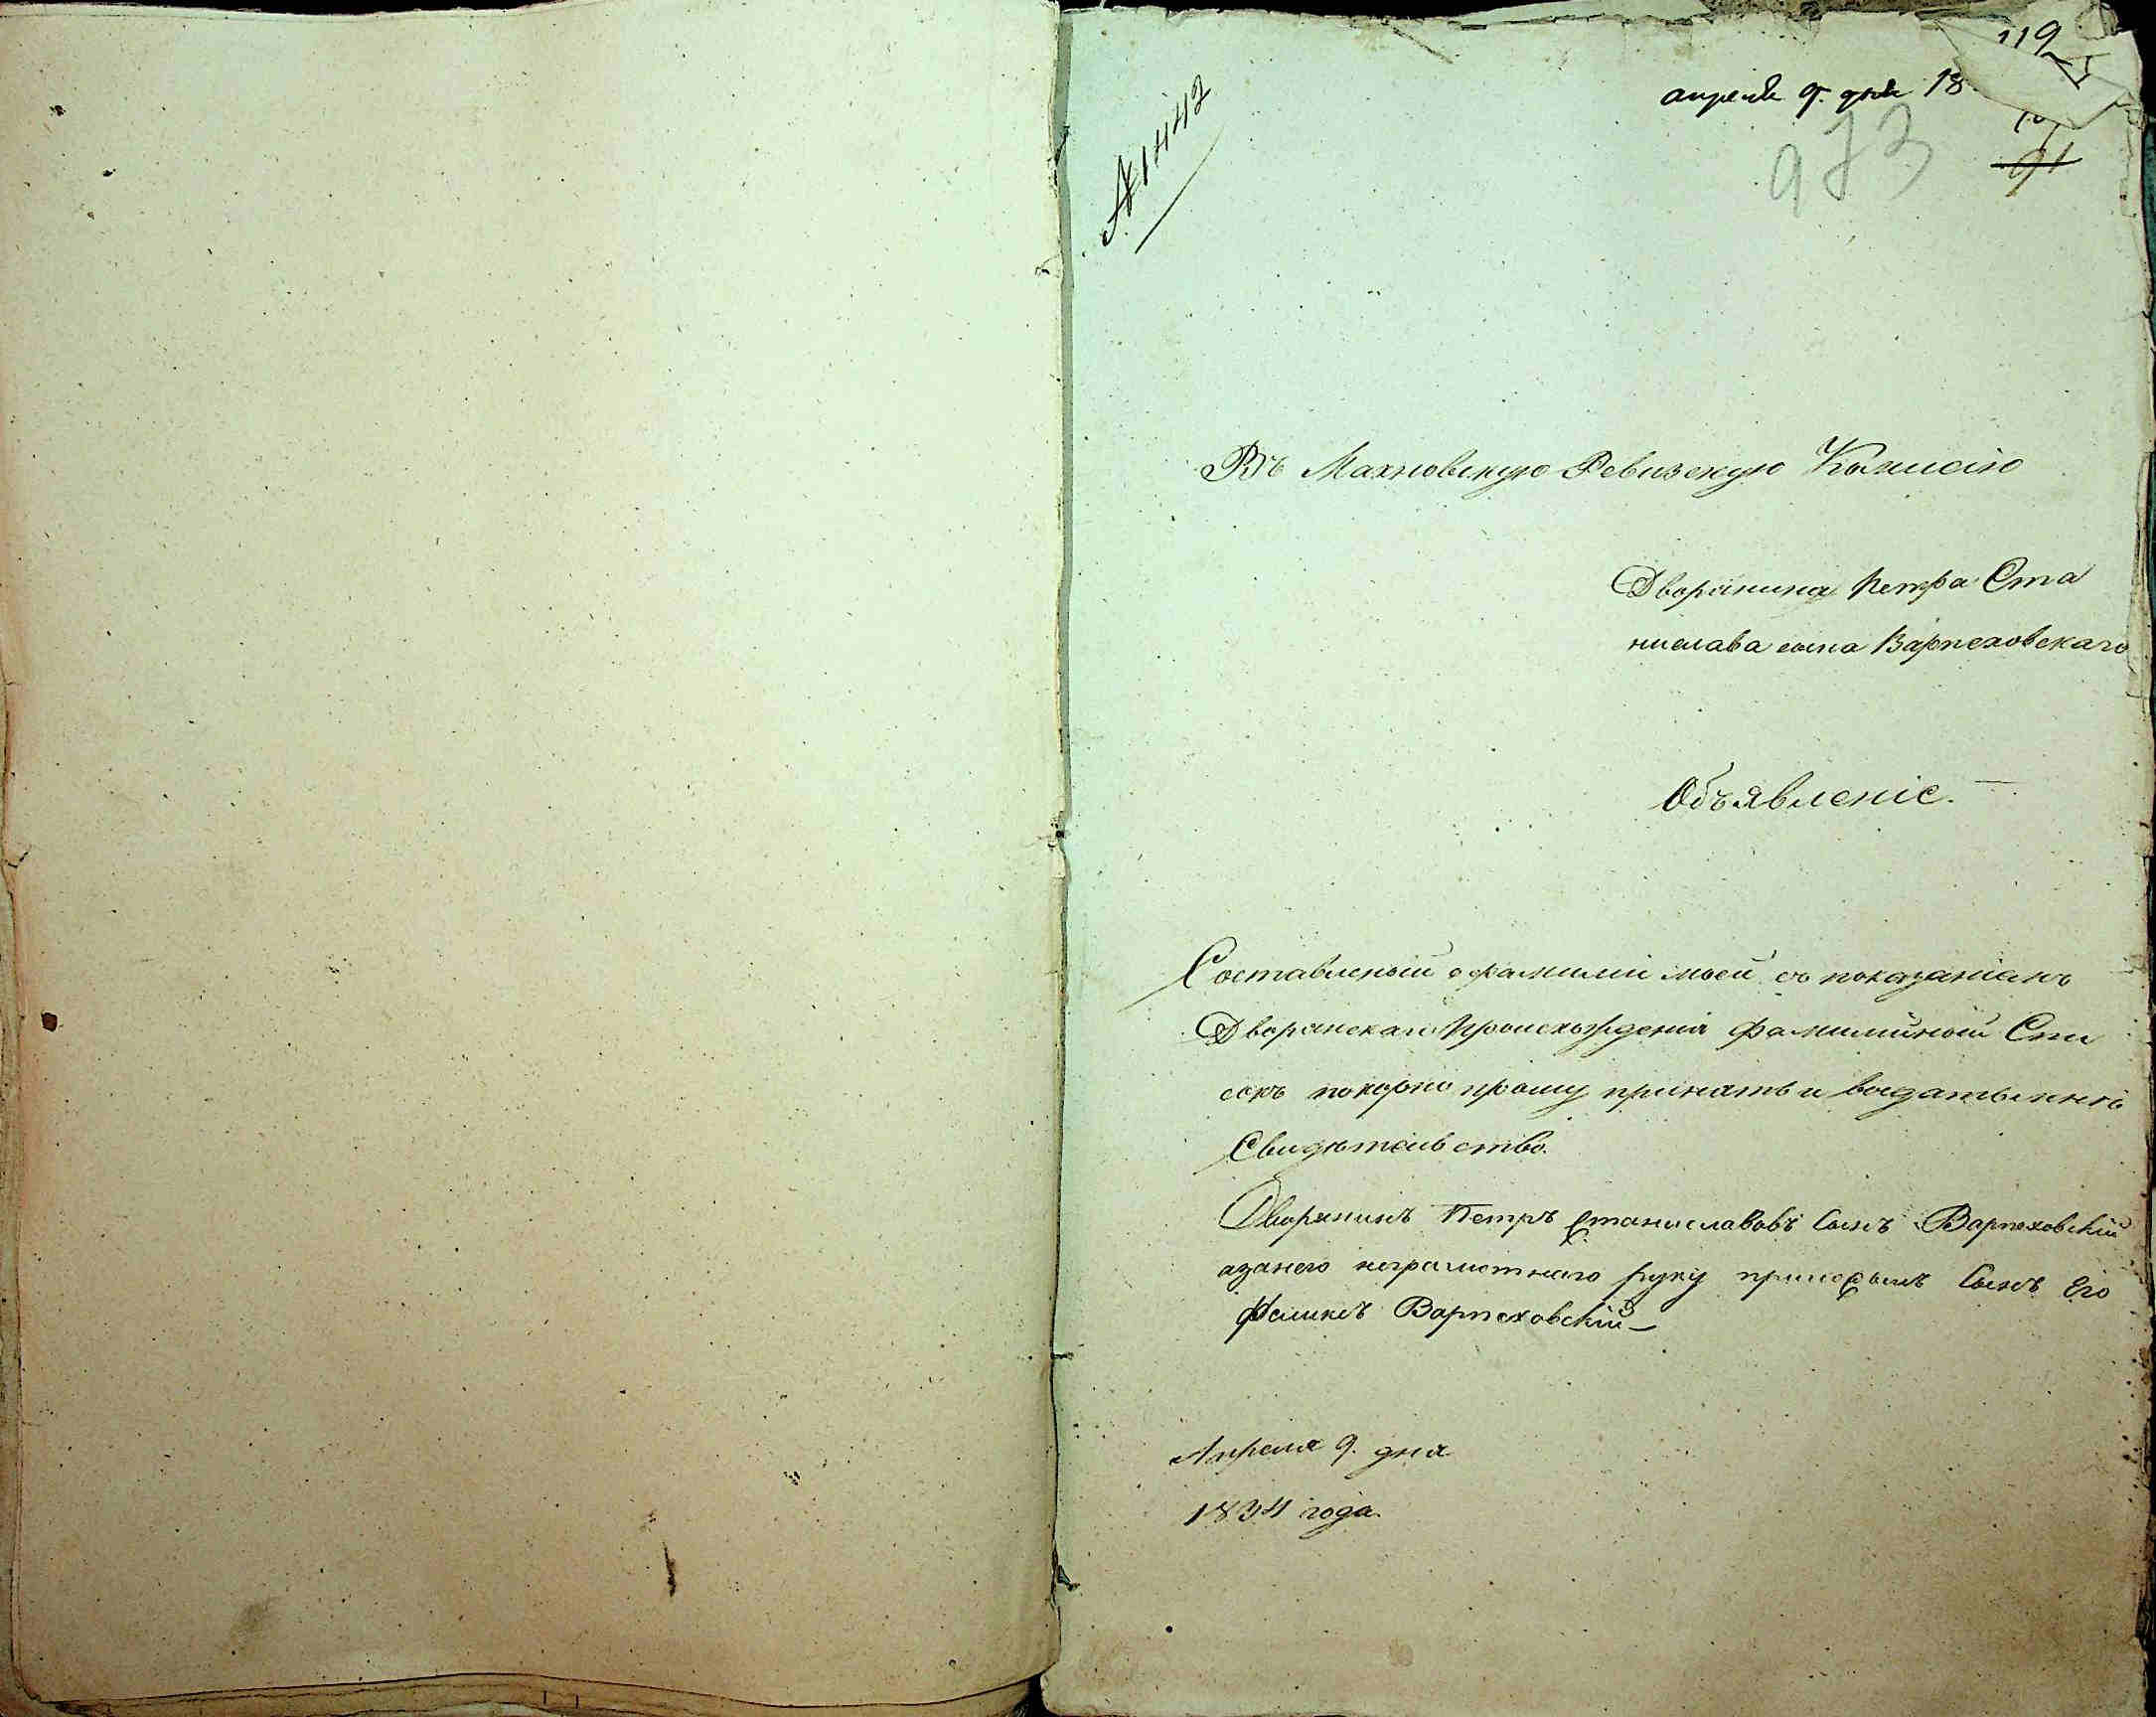 119
апреля 9. дня 18
№ 1442
973
91
Въ Махновскую Ревизскую Комисію
Дворянина Петра Ста
нислава сына Варпеховскаго
Объявленіе.
Составленый о фамиліи моей съ показаніемъ
Дворянскаго Происхожденія фамилійной Спи
сокъ покорно прошу принять и выдать мнѣ
Свидѣтельство.
Дворянинъ Петръ Станиславовъ Сынъ Варпеховскій
а за него неграмотнаго руку приложилъ Сынъ Его
Феликсъ Варпеховскій
Апреля 9. дня
1834 года.